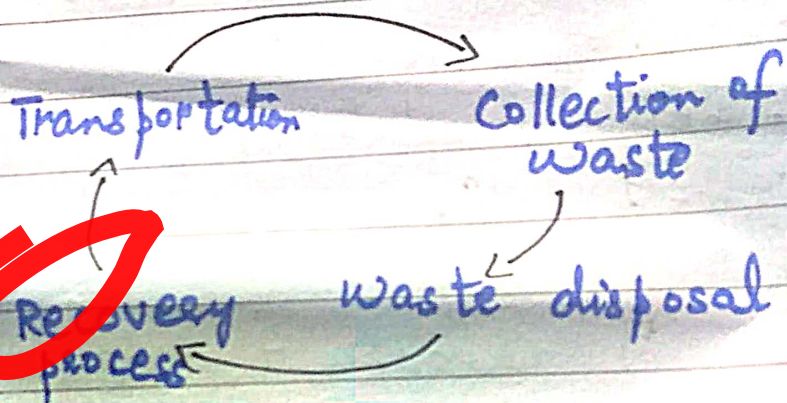 Transportation
Collection of
waste
Waste disposal
Recovery
process